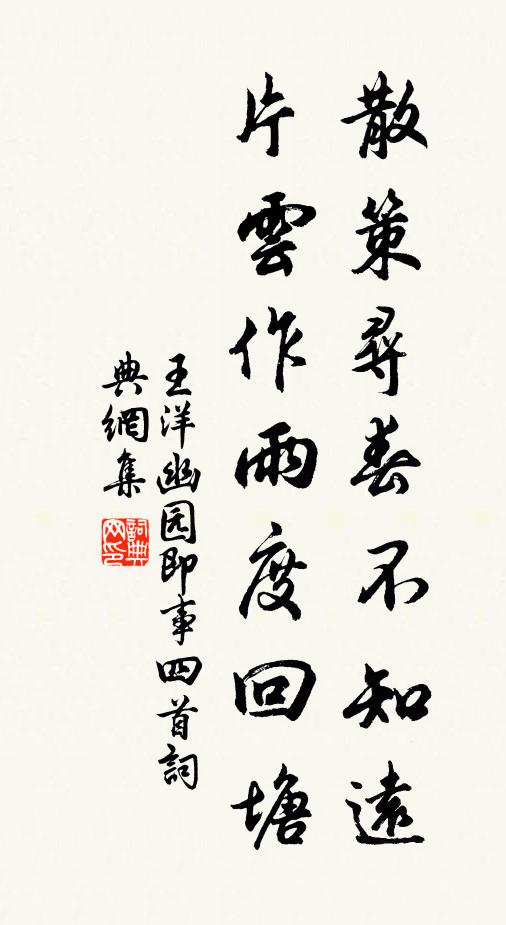 散策尋春不知遠
片雲作雨度回塘
王洋幽园即事四首詞
典網集
詞典网印